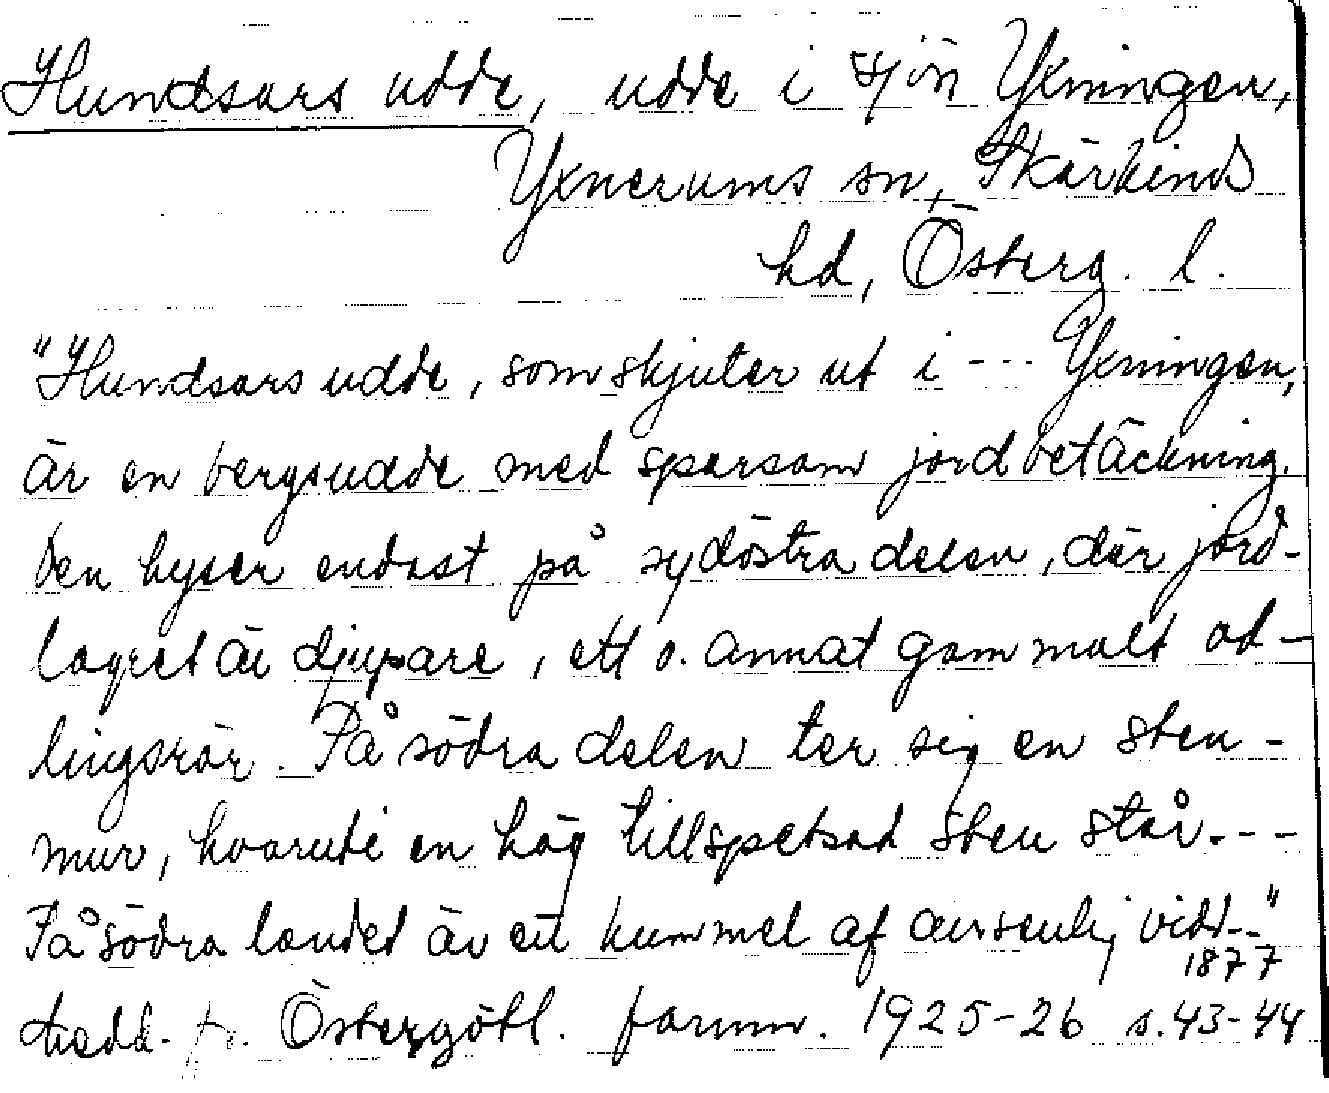 Hundsars udde, udde i sjön Yxningen,
Yxnerums sn, Skärkinds
hd, Österg. l.
"Hundsars udde, som skjuter ut i --- Yxningen,
är en bergsudde med sparsam jordbetäckning.
Den hyser endast på sydöstra delen, där jord-
lagret är djupare, ett o. annat gammalt od-
lingsrör. På södra delen ter sig en sten-
mur, hvaruti en hög tillspetsad sten står. ---
På södra landet är ett kummel af ansenlig vidd --"
1877
Medd. fr. Östergötl. fornm. 1925-26 s. 43-44